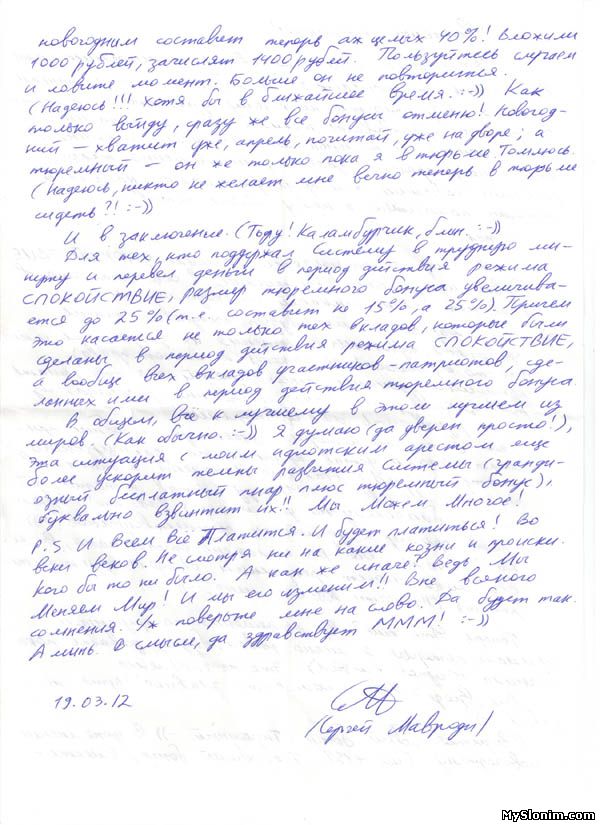 новогодним составит теперь аж целых 40%! Вложили
1000 рублей, зачислят 1400 рублей. Пользуйтесь случаем
и ловите момент. Больше он не повторится.
(Надеюсь!!! Хотя бы в ближайшее время. :-)) Как
только выйду, сразу же все бонусы отменю! Новогод-
ний – хватит уже, апрель, почитай, уже на дворе; а
тюремный – он же только пока я в тюрьме томлюсь.
(Надеюсь, никто не желает мне вечно теперь в тюрьме
сидеть?! :-))
И в заключение. (Тьфу! Каламбурчик, блин. :-))
Для тех, кто поддержал Систему в трудную ми-
нуту и перевел деньги в период действия режима
СПОКОЙСТВИЕ, размер тюремного бонуса увеличива-
ется до 25% (т.е. составит не 15%, а 25%). Причем
это касается не только тех вкладов, которые были
сделаны в период действия режима СПОКОЙСТВИЕ,
а вообще всех вкладов участников-патриотов, сде-
ланных ими в период действия тюремного бонуса.
В общем, всё к лучшему в этом лучшем из
миров. (Как обычно. :-)) Я думаю (да уверен просто!),
эта ситуация с моим идиотским арестом еще
более ускорит темпы развития Системы (гранди-
озный бесплатный пиар плюс тюремный бонус),
буквально взвинтит их!! Мы Можем Многое!
P.S И Всем Всё Платится. И будет платиться! Во
веки веков. Не смотря ни на какие козни и происки.
кого бы то ни было. А как же иначе? Ведь Мы
Меняем Мир! И мы его изменим!! Вне всякого
сомнения. Уж поверьте мне на слово. Да будет так.
Аминь. В смысле, да здравствует МММ! :-))
19.03.12
/Сергей Мавроди/
MySlonim.com